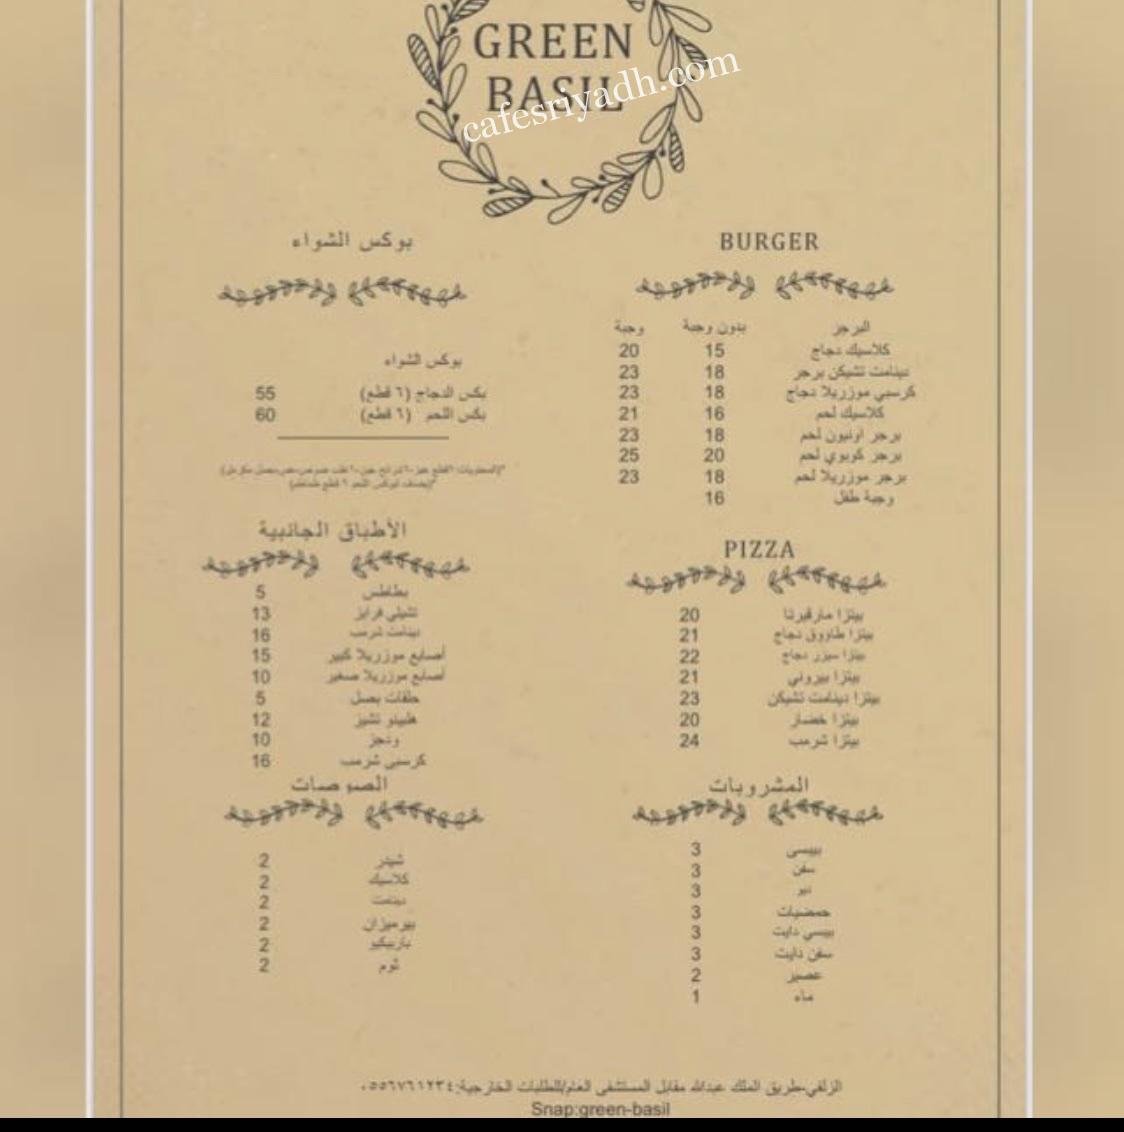 GREEN
BASIL
cafesriyadh.com
BURGER
البرجر بدون وجبة وجبة
كلاسيك دجاج 15 20
دينامت تشيكن برجر 18 23
كرسبي موزريلا دجاج 18 23
كلاسيك لحم 16 21
برجر اونيون لحم 18 23
برجر كوبوي لحم 20 25
برجر موزريلا لحم 18 23
وجبة طفل 16
بوكس الشواء
بوكس الشواء
بكس الدجاج (٦ قطع) 55
بكس اللحم (٦ قطع) 60
PIZZA
بيتزا مارقيرتا 20
بيتزا طاووق دجاج 21
بيتزا سيزر دجاج 22
بيتزا بيروني 21
بيتزا دينامت تشيكن 23
بيتزا خضار 20
بيتزا شرمب 24
الأطباق الجانبية
بطاطس 5
تشيلي فرايز 13
دينامت شرمب 16
أصابع موزريلا كبير 15
أصابع موزريلا صغير 10
حلقات بصل 5
هلبينو تشيز 12
ودجز 10
كرسبي شرمب 16
المشروبات
بيبسي 3
سفن 3
ديو 3
حمضيات 3
بيبسي دايت 3
سفن دايت 3
عصير 2
ماء 1
الصوصات
شيدر 2
كلاسيك 2
دينامت 2
بيرميزان 2
باربيكيو 2
ثوم 2
الزلفي-طريق الملك عبدالله مقابل المستشفى العام/للطلبات الخارجية:٠٥٥٦٧٦١٢٣٤
Snap:green-basil